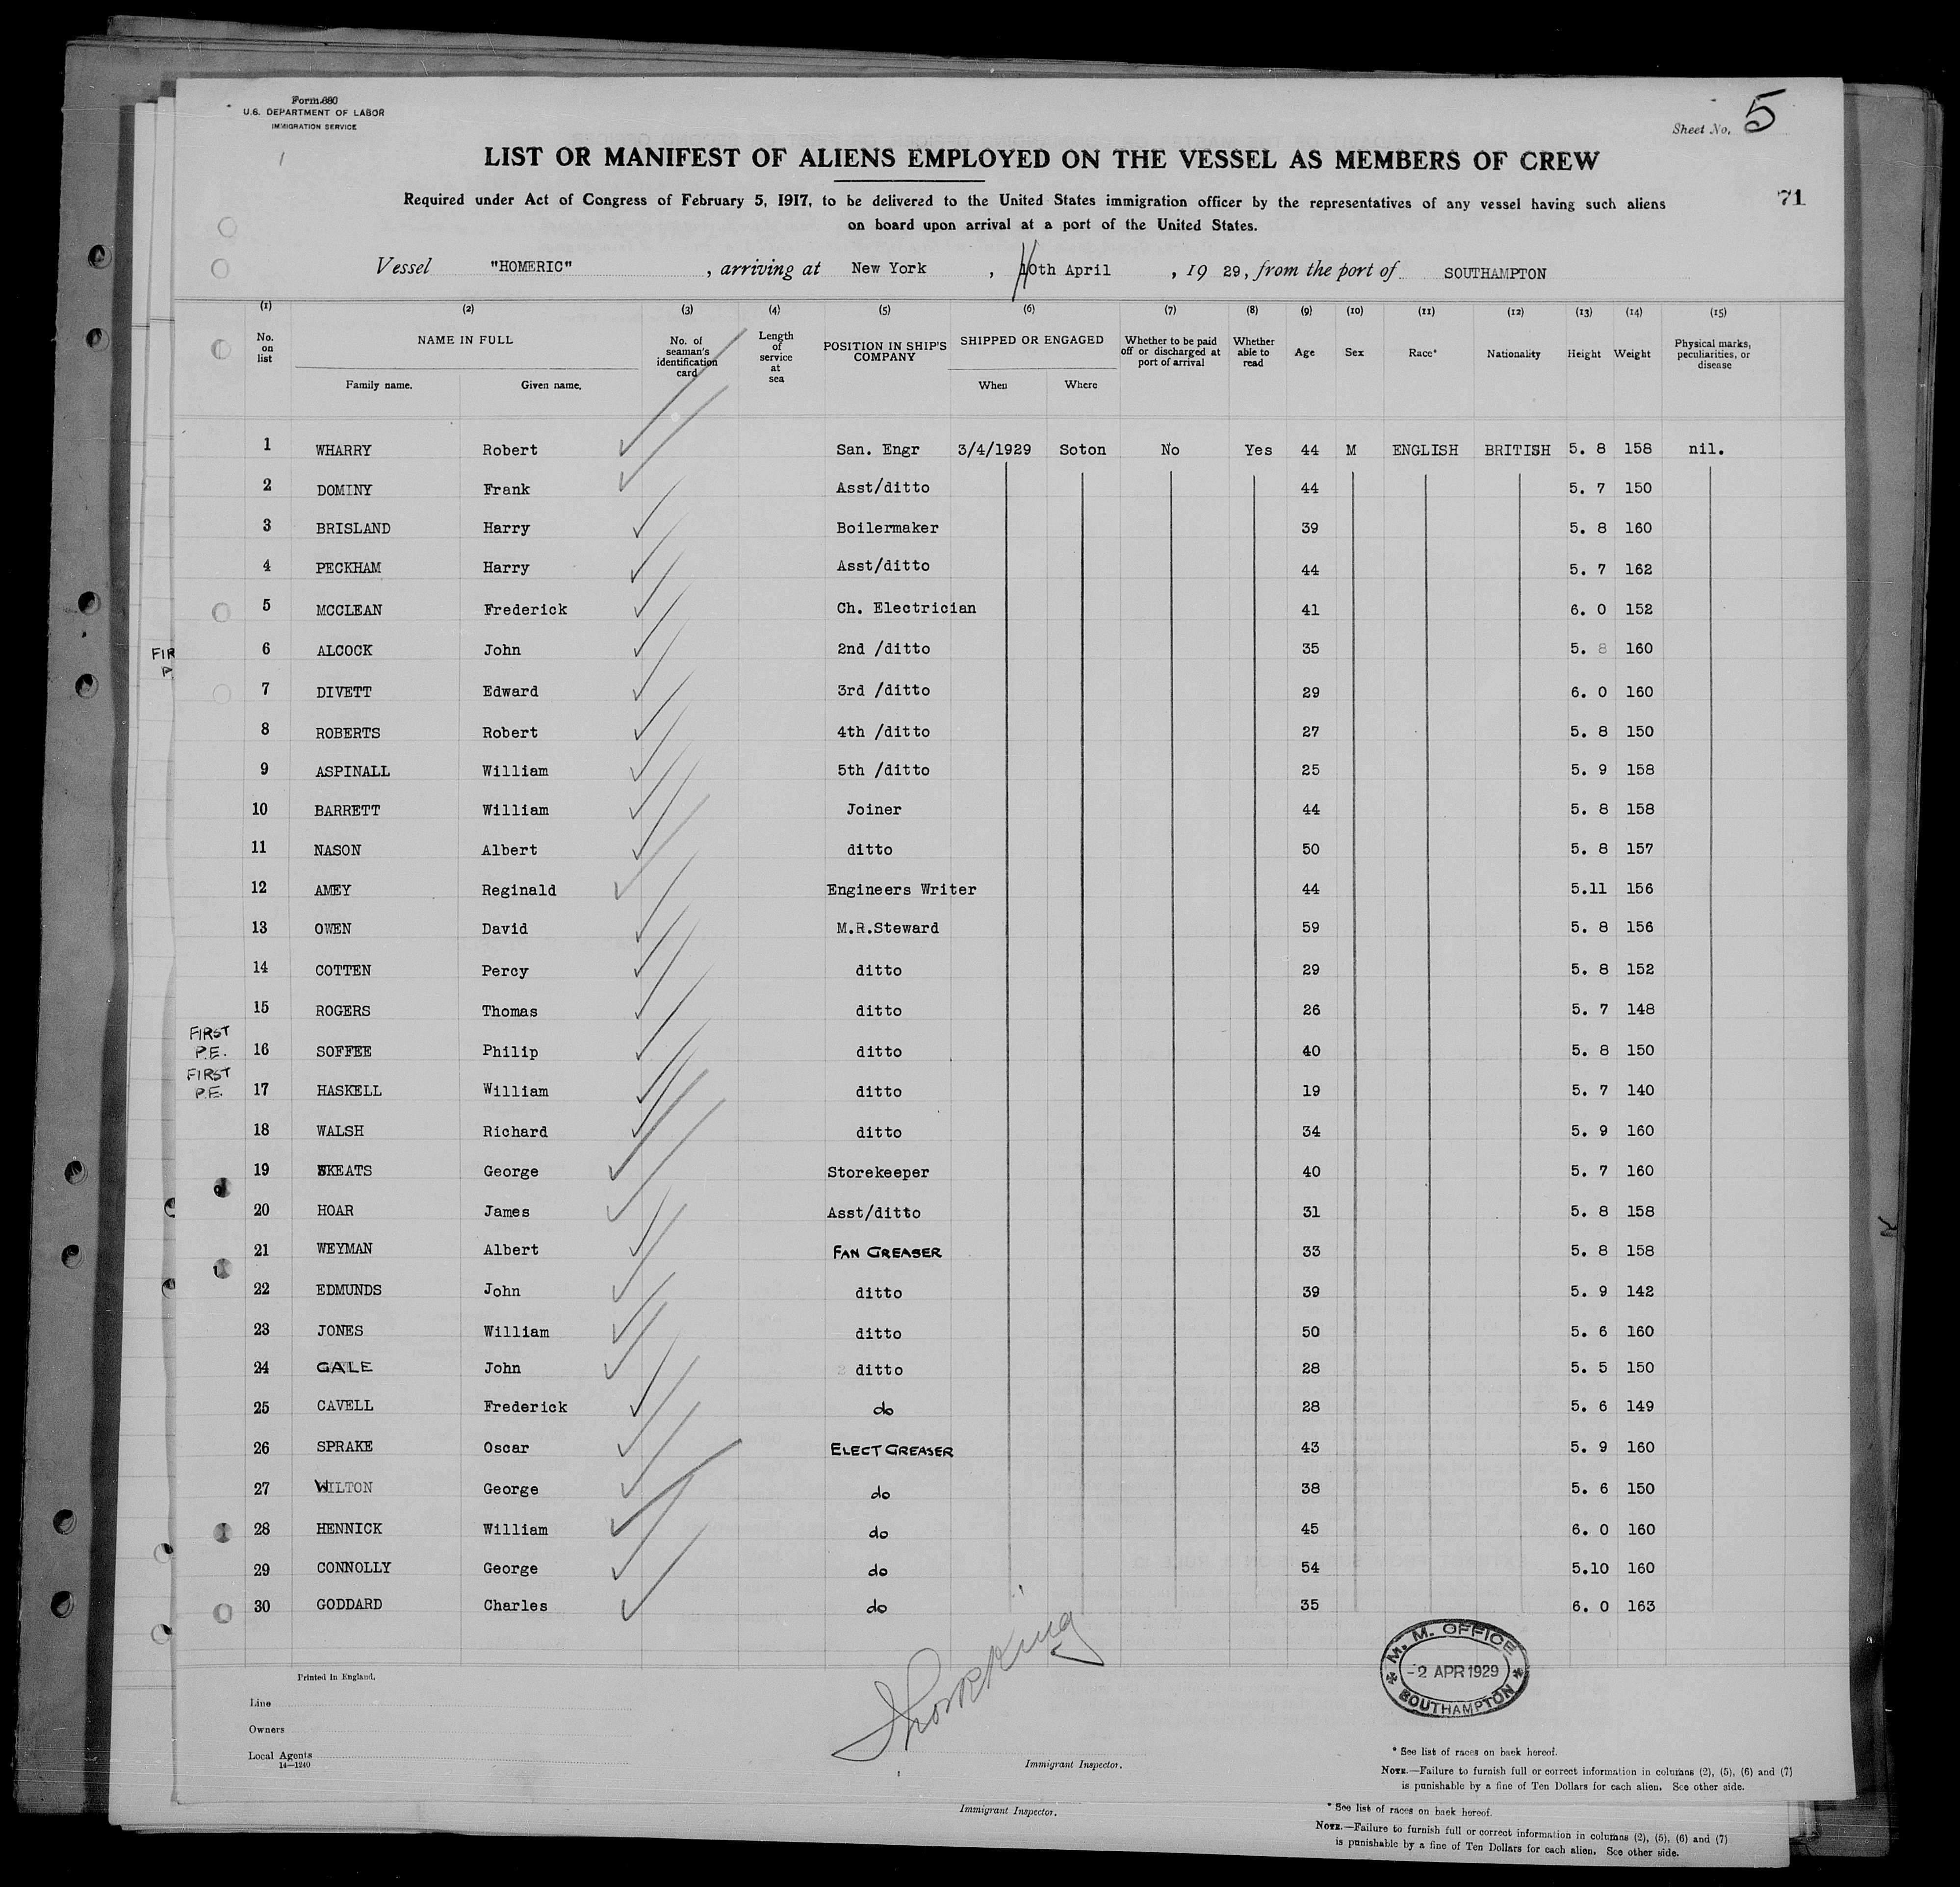 Form 680
U.S. DEPARTMENT OF LABOR
IMMIGRATION SERVICE
Sheet No. 5
LIST OR MANIFEST OF ALIENS EMPLOYED ON THE VESSEL AS MEMBERS OF CREW
71
Required under Act of Congress of February 5, 1917, to be delivered to the United States immigration officer by the representatives of any vessel having such aliens
on board upon arrival at a port of the United States.
Vessel "HOMERIC" , arriving at New York , 10th April , 19 29, from the port of SOUTHAMPTON
(1) (2) (3) (4) (5) (6) (7) (8) (9) (10) (11) (12) (13) (14) (15)
No. on list NAME IN FULL No. of seaman's identification card Length of service at sea POSITION IN SHIP'S COMPANY SHIPPED OR ENGAGED Whether to be paid off or discharged at port of arrival Whether able to read Age Sex Race* Nationality Height Weight Physical marks, peculiarities, or disease
Family name. Given name. When Where
1 WHARRY Robert San. Engr 3/4/1929 Soton No Yes 44 M ENGLISH BRITISH 5. 8 158 nil.
2 DOMINY Frank Asst/ditto 44 5. 7 150
3 BRISLAND Harry Boilermaker 39 5. 8 160
4 PECKHAM Harry Asst/ditto 44 5. 7 162
5 MCCLEAN Frederick Ch. Electrician 41 6. 0 152
FIR
P.
6 ALCOCK John 2nd /ditto 35 5. 8 160
7 DIVETT Edward 3rd /ditto 29 6. 0 160
8 ROBERTS Robert 4th /ditto 27 5. 8 150
9 ASPINALL William 5th /ditto 25 5. 9 158
10 BARRETT William Joiner 44 5. 8 158
11 NASON Albert ditto 50 5. 8 157
12 AMEY Reginald Engineers Writer 44 5.11 156
13 OWEN David M.R.Steward 59 5. 8 156
14 COTTEN Percy ditto 29 5. 8 152
15 ROGERS Thomas ditto 26 5. 7 148
FIRST
P.E. 16 SOFFEE Philip ditto 40 5. 8 150
FIRST
P.E. 17 HASKELL William ditto 19 5. 7 140
18 WALSH Richard ditto 34 5. 9 160
19 SKEATS George Storekeeper 40 5. 7 160
20 HOAR James Asst/ditto 31 5. 8 158
21 WEYMAN Albert FAN GREASER 33 5. 8 158
22 EDMUNDS John ditto 39 5. 9 142
23 JONES William ditto 50 5. 6 160
24 GALE John ditto 28 5. 5 150
25 CAVELL Frederick do 28 5. 6 149
26 SPRAKE Oscar ELECT GREASER 43 5. 9 160
27 WILTON George do 38 5. 6 150
28 HENNICK William do 45 6. 0 160
29 CONNOLLY George do 54 5.10 160
30 GODDARD Charles do 35 6. 0 163
M. M. OFFICE
-2 APR 1929
SOUTHAMPTON
Printed in England.
Line
Owners
Local Agents
14—1240
Immigrant Inspector.
* See list of races on back hereof.
NOTE.—Failure to furnish full or correct information in columns (2), (5), (6) and (7)
is punishable by a fine of Ten Dollars for each alien. See other side.
Immigrant Inspector.
* See list of races on back hereof.
NOTE.—Failure to furnish full or correct information in columns (2), (5), (6) and (7)
is punishable by a fine of Ten Dollars for each alien. See other side.